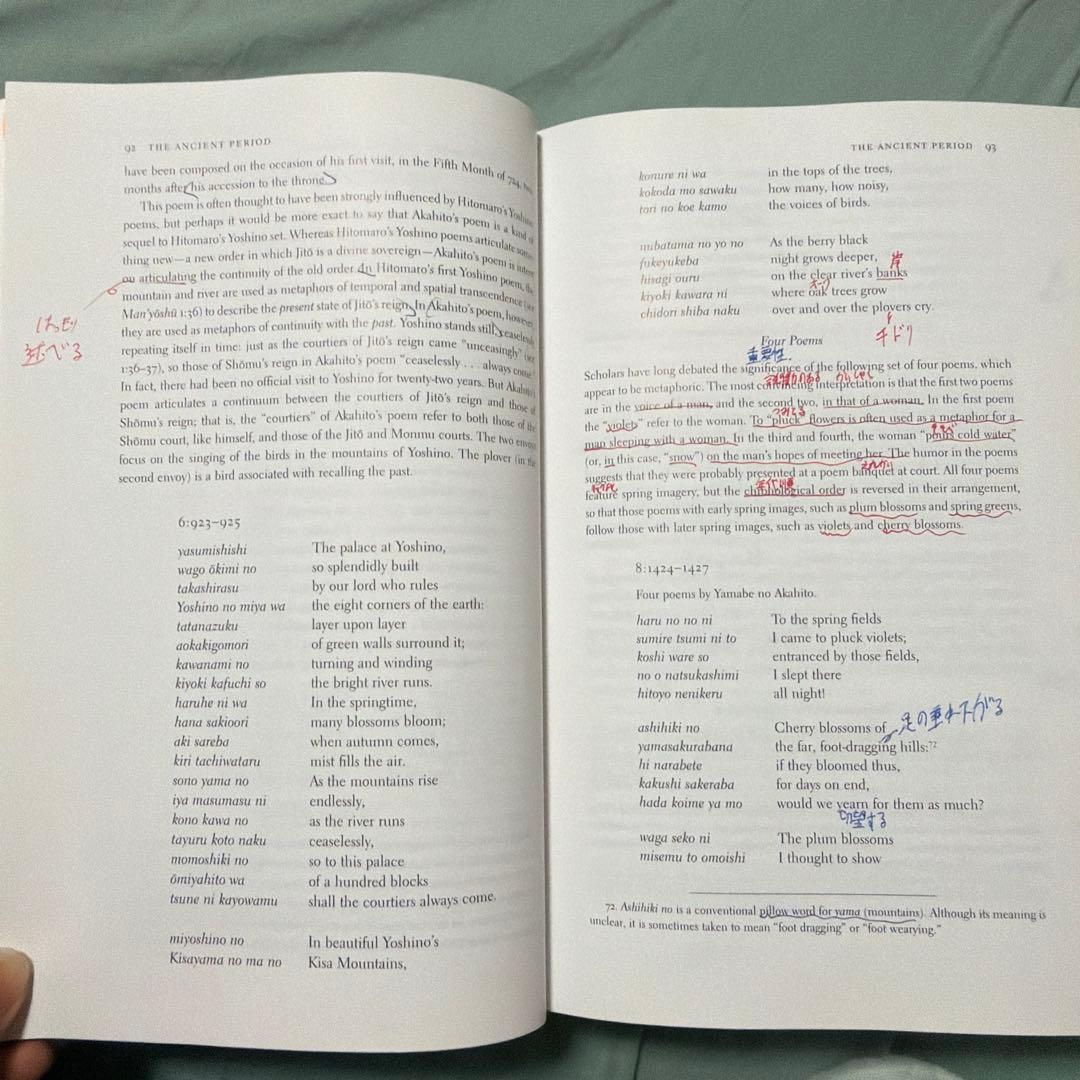 92 THE ANCIENT PERIOD
have been composed on the occasion of his first visit, in the Fifth Month of 724, two
months after his accession to the throne.
This poem is often thought to have been strongly influenced by Hitomaro's Yoshino
poems, but perhaps it would be more exact to say that Akahito's poem is a kind of
sequel to Hitomaro's Yoshino set. Whereas Hitomaro's Yoshino poems articulate some-
thing new—a new order in which Jitō is a divine sovereign—Akahito's poem is intent
on articulating the continuity of the old order. In Hitomaro's first Yoshino poem, the
mountain and river are used as metaphors of temporal and spatial transcendence (see
Man'yōshū 1:36) to describe the present state of Jitō's reign. In Akahito's poem, however,
they are used as metaphors of continuity with the past. Yoshino stands still, ceaselessly
repeating itself in time: just as the courtiers of Jitō's reign came "unceasingly" (see
1:36–37), so those of Shōmu's reign in Akahito's poem "ceaselessly . . . always come."
In fact, there had been no official visit to Yoshino for twenty-two years. But Akahito's
poem articulates a continuum between the courtiers of Jitō's reign and those of
Shōmu's reign; that is, the "courtiers" of Akahito's poem refer to both those of the
Shōmu court, like himself, and those of the Jitō and Monmu courts. The two envoys
focus on the singing of the birds in the mountains of Yoshino. The plover (in the
second envoy) is a bird associated with recalling the past.
はっきり
述べる
6:923–925
yasumishishi The palace at Yoshino,
wago ōkimi no so splendidly built
takashirasu by our lord who rules
Yoshino no miya wa the eight corners of the earth:
tatanazuku layer upon layer
aokakigomori of green walls surround it;
kawanami no turning and winding
kiyoki kafuchi so the bright river runs.
haruhe ni wa In the springtime,
hana sakioori many blossoms bloom;
aki sareba when autumn comes,
kiri tachiwataru mist fills the air.
sono yama no As the mountains rise
iya masumasu ni endlessly,
kono kawa no as the river runs
tayuru koto naku ceaselessly,
momoshiki no so to this palace
ōmiyahito wa of a hundred blocks
tsune ni kayowamu shall the courtiers always come.
miyoshino no In beautiful Yoshino's
Kisayama no ma no Kisa Mountains,
THE ANCIENT PERIOD 93
konure ni wa in the tops of the trees,
kokoda mo sawaku how many, how noisy,
tori no koe kamo the voices of birds.
mibatama no yo no As the berry black
fukeyukeba night grows deeper,
岸
hisagi ouru on the clear river's banks
オーク
kiyoki kawara ni where oak trees grow
chidori shiba naku over and over the plovers cry.
チドリ
Four Poems
重要性.
Scholars have long debated the significance of the following set of four poems, which
説得力のある
appear to be metaphoric. The most convincing interpretation is that the first two poems
are in the voice of a man, and the second two, in that of a woman. In the first poem
the "violets" refer to the woman. To "pluck" flowers is often used as a metaphor for a
man sleeping with a woman. In the third and fourth, the woman "pours cold water"
(or, in this case, "snow") on the man's hopes of meeting her. The humor in the poems
suggests that they were probably presented at a poem banquet at court. All four poems
年代順
feature spring imagery, but the chronological order is reversed in their arrangement,
so that those poems with early spring images, such as plum blossoms and spring greens,
follow those with later spring images, such as violets and cherry blossoms.
8:1424–1427
Four poems by Yamabe no Akahito.
haru no no ni To the spring fields
sumire tsumi ni to I came to pluck violets;
koshi ware so entranced by those fields,
no o natsukashimi I slept there
hitoyo nenikeru all night!
ashihiki no Cherry blossoms of
足の垂れ下がる
yamasakurabana the far, foot-dragging hills:72
hi narabete if they bloomed thus,
kakushi sakeraba for days on end,
hada koime ya mo would we yearn for them as much?
切望する
waga seko ni The plum blossoms
misemu to omoishi I thought to show
72. Ashihiki no is a conventional pillow word for yama (mountains). Although its meaning is
unclear, it is sometimes taken to mean "foot dragging" or "foot wearying."